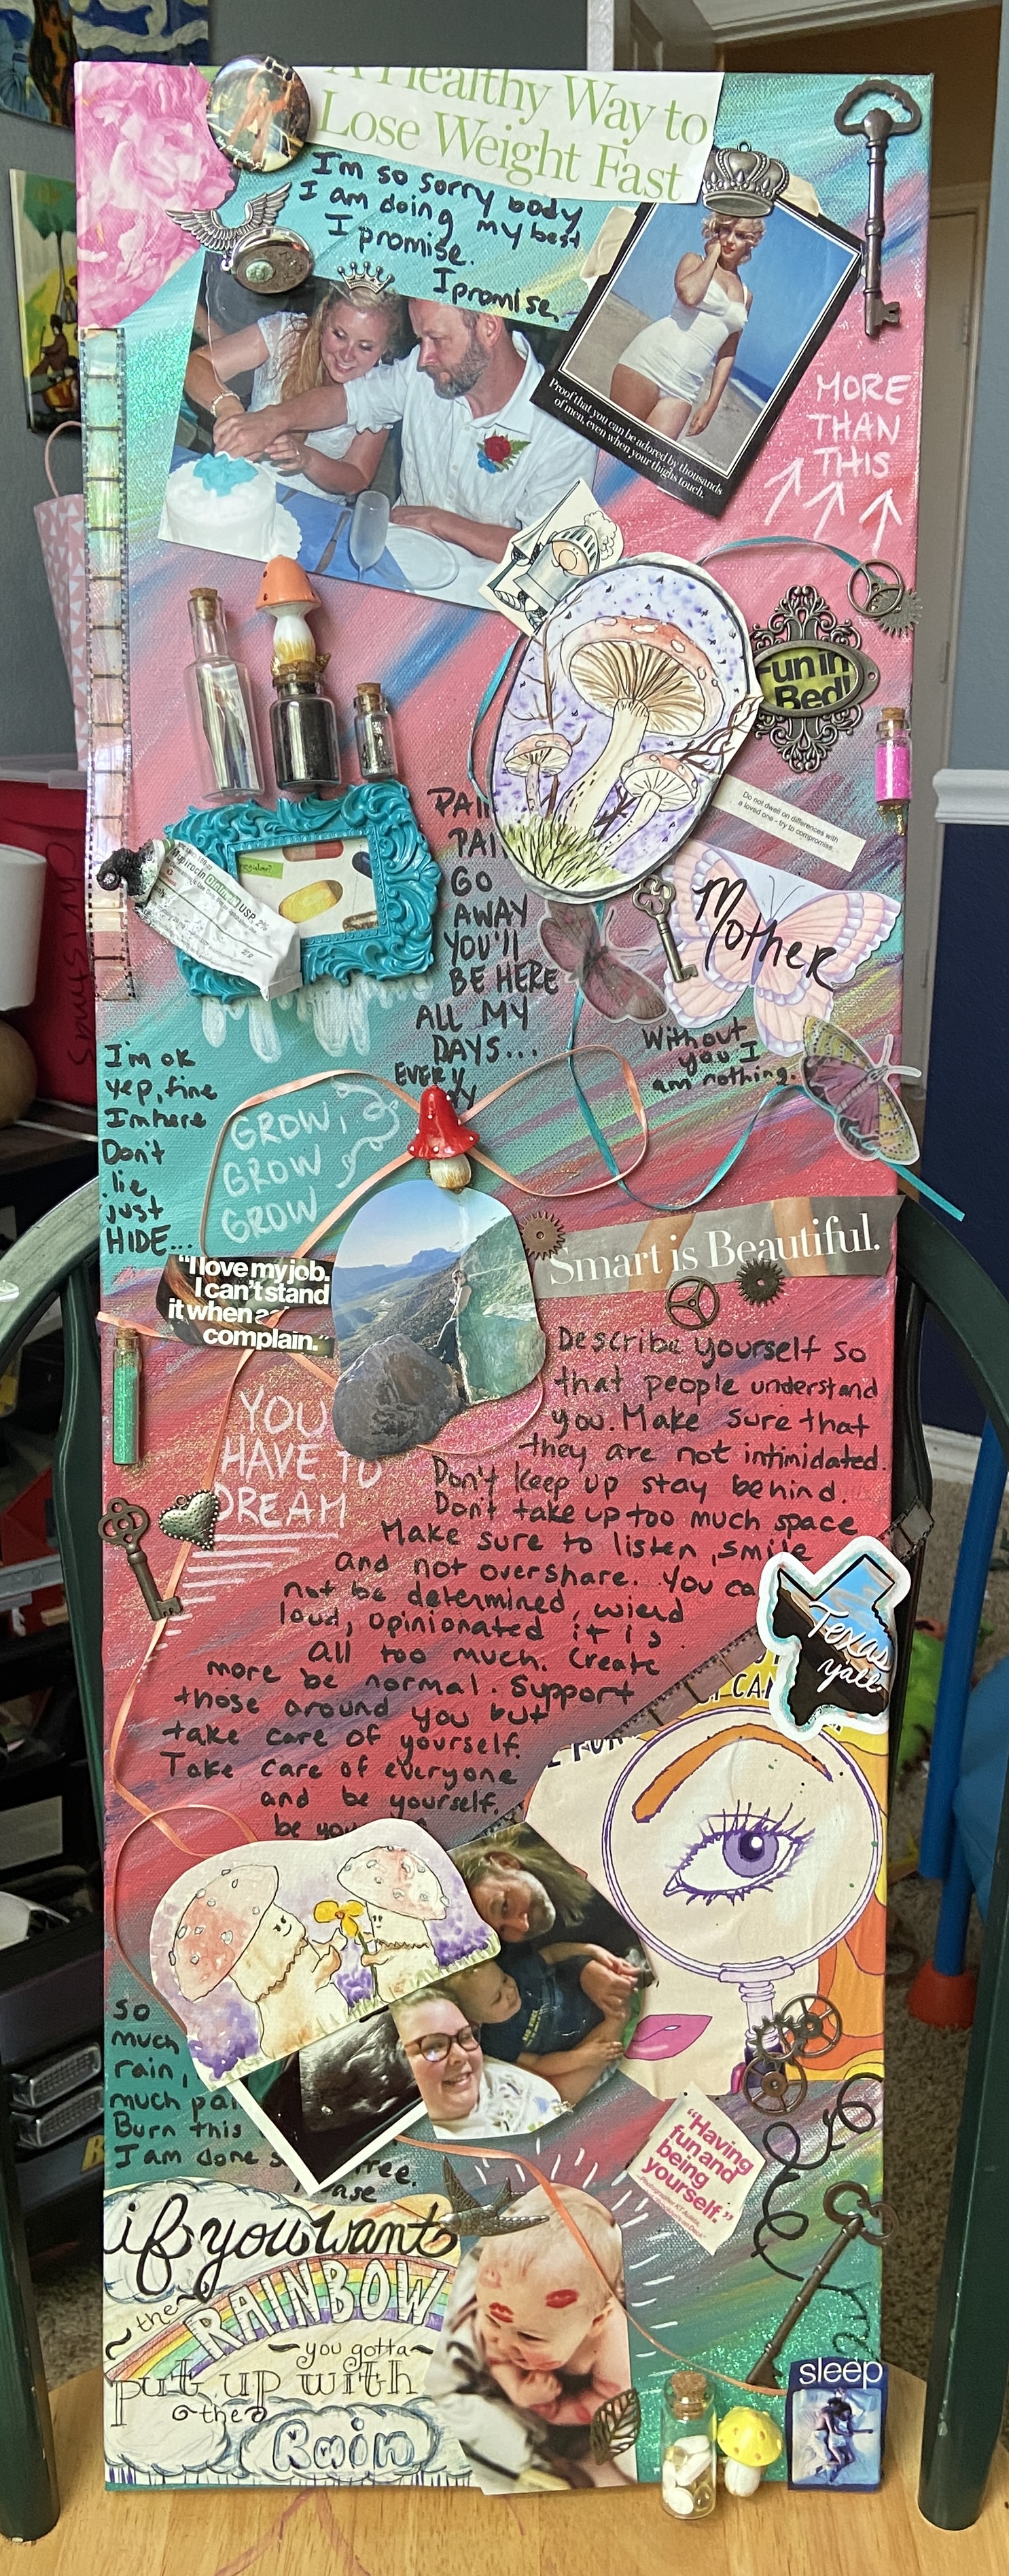 A Healthy Way to
Lose Weight Fast
I'm so sorry body
I am doing my best
I promise.
I promise.
Proof that you can be adored by thousands
of men, even when your thighs touch.
MORE
THAN
THIS
Fun in
Bed!
Do not dwell on differences with
a loved one - try to compromise.
regular?
Mupirocin Ointment USP, 2%
PAIN
PAIN
GO
AWAY
YOU'll
BE HERE
ALL MY
DAYS...
EVERY
Mother
Without
you I
am nothing.
I'm ok
Yep, fine
I'm here
Don't
lie
just
HIDE...
GROW,
GROW
GROW
"I love my job.
I can't stand
it when
complain."
Smart is Beautiful.
Describe yourself so
that people understand
you. Make sure that
they are not intimidated.
Don't keep up stay behind.
Don't take up too much space
Make sure to listen, smile
and not overshare. You ca
not be determined, wierd
loud, opinionated it is
All too much. Create
more be normal. Support
those around you but
take care of yourself.
Take care of everyone
and be yourself.
be you
YOU
HAVE TO
DREAM
Texas
y'all
CAN
So
much
rain,
much pai
Burn this
I am done s ree.
"Having
fun and
being
yourself."
if you want
the RAINBOW
you gotta
put up with
the
Rain
sleep